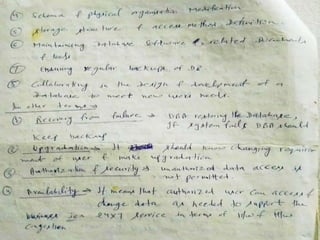 ④ Schema & physical organisation Modification
⑤ storage structure & access method Definition
⑥ Maintaining Database Software & related Documents
& tools
⑦ Ensuring regular backups of DB.
⑧ Collaborating in the design & development of a
Database to meet new user needs.
In other terms →
① Recovery from failure → DBA restoring the Database,
If system fails DBA should
keep backup
② Upgradation → It should know changing require
ment of user & make upgradation.
③ Authorization & security → unauthorized data access is
not permitted.
④ Availability → It means that authorized user can access &
change data as needed to support the
business 24x7 service in terms of H/w & H/w